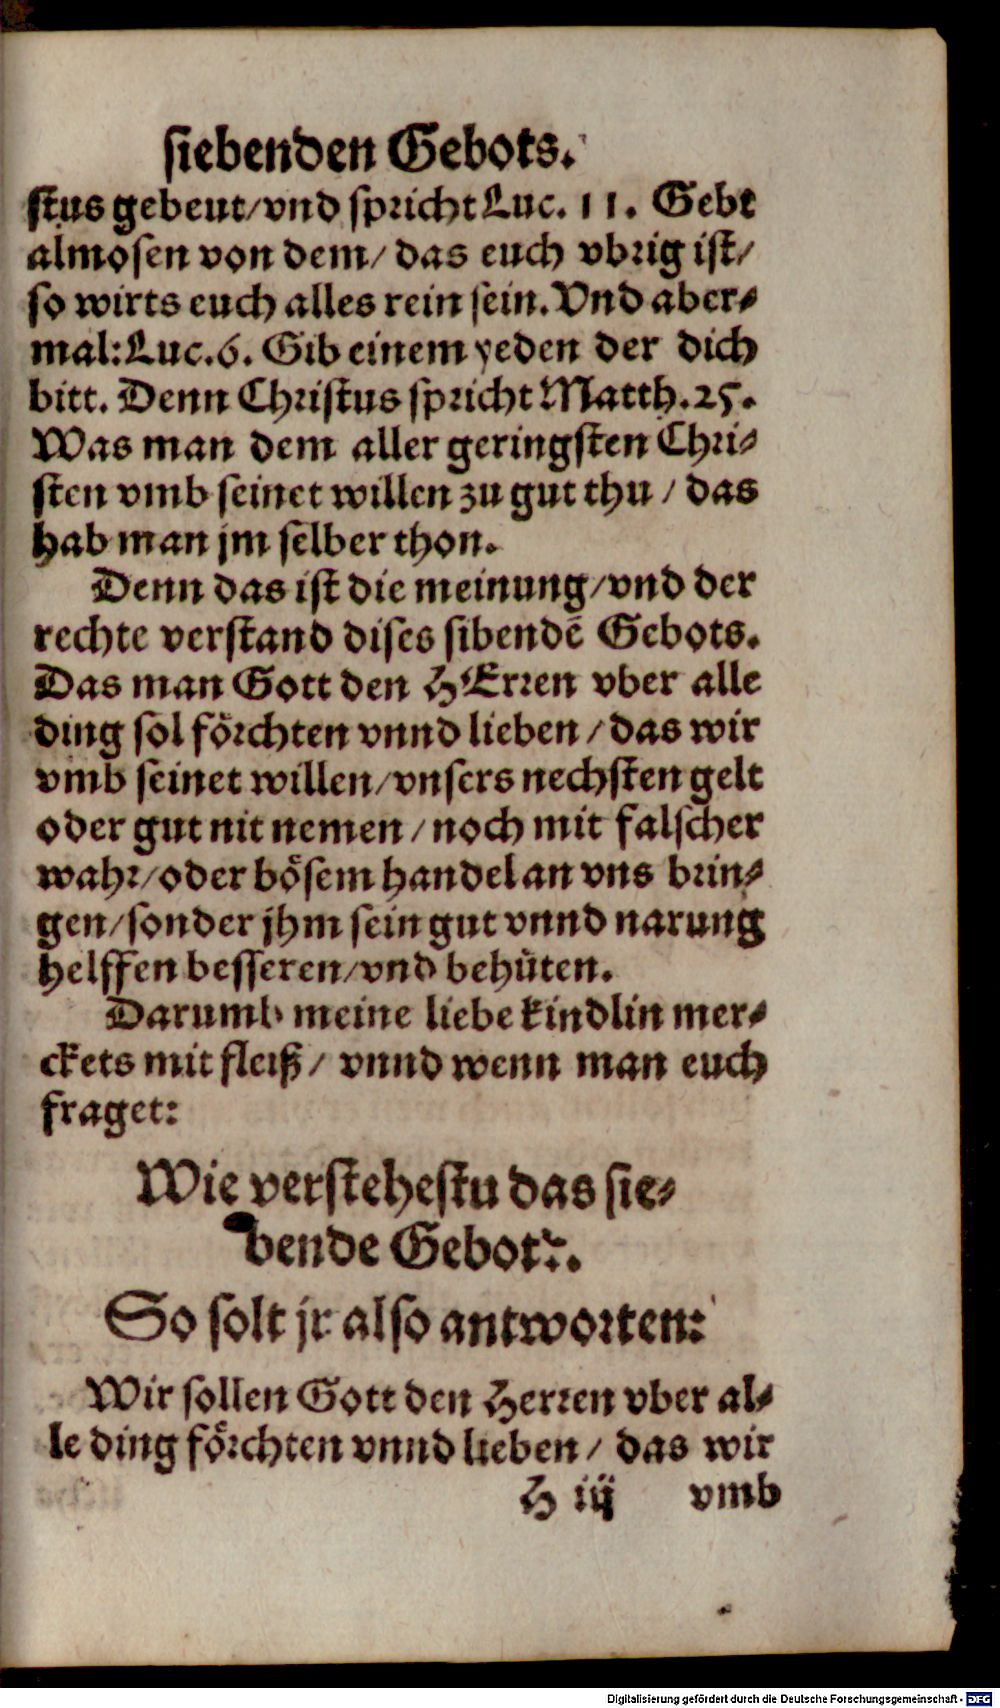 siebenden Gebots.
stus gebeut/vnd spricht Luc. 11. Gebt
almosen von dem/ das euch vbrig ist/
so wirts euch alles rein sein. Vnd aber⸗
mal: Luc. 6. Gib einem yeden der dich
bitt. Denn Christus spricht Matth. 25.
Was man dem aller geringsten Chri⸗
sten vmb seinet willen zu gut thu / das
hab man jm selber thon.
Denn das ist die meinung/vnd der
rechte verstand dises sibendē Gebots.
Das man Gott den HErren vber alle
ding sol föꝛchten vnnd lieben / das wir
vmb seinet willen/vnsers nechsten gelt
oder gut nit nemen / noch mit falscher
wahr/oder bösem handel an vns brin⸗
gen/sonder jhm sein gut vnnd narung
helffen besseren/vnd behüten.
Darumb meine liebe kindlin mer⸗
ckets mit fleiß / vnnd wenn man euch
fraget:
Wie verstehestu das sie⸗
bende Gebot?.
So solt jr also antworten:
Wir sollen Gott den Herren vber al⸗
le ding föꝛchten vnnd lieben / das wir
H iij vmb
Digitalisierung gefördert durch die Deutsche Forschungsgemeinschaft - DFG